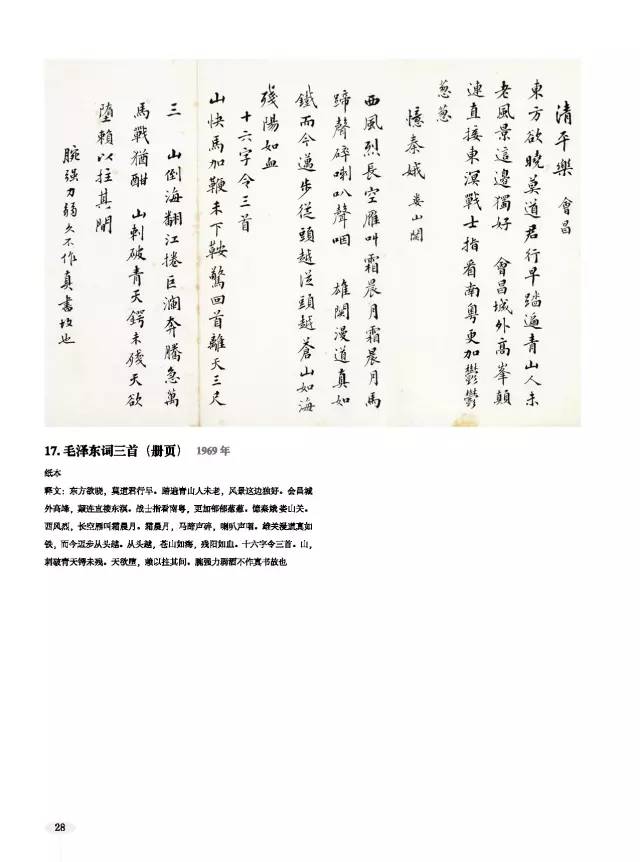 清平樂 會昌
東方欲曉莫道君行早踏遍青山人未
老風景這邊獨好 會昌城外高峯顛
連直接東溟戰士指看南粤更加鬱鬱
葱葱
憶秦娥 娄山関
西風烈長空雁叫霜晨月霜晨月馬
蹄聲碎喇叭聲咽 雄関漫道真如
鐵而今邁步從頭越從頭越蒼山如海
殘陽如血
十六字令三首
山快馬加鞭未下鞍驚回首離天三尺
三 山倒海翻江捲巨瀾奔騰急萬
馬戰猶酣 山刺破青天鍔未殘天欲
墮賴以拄其間
腕强力弱久不作真書故也
17. 毛泽东词三首（册页） 1969 年
纸本
释文：东方欲晓，莫道君行早。踏遍青山人未老，风景这边独好。会昌城
外高峰，颠连直接东溟。战士指看南粤，更加郁郁葱葱。憶秦娥 娄山关。
西风烈，长空雁叫霜晨月。霜晨月，马蹄声碎，喇叭声咽。雄关漫道真如
铁，而今迈步从头越。从头越，苍山如海，残阳如血。十六字令三首。山，
刺破青天锷未残。天欲堕，赖以拄其间。腕强力弱酒不作真书故也
28